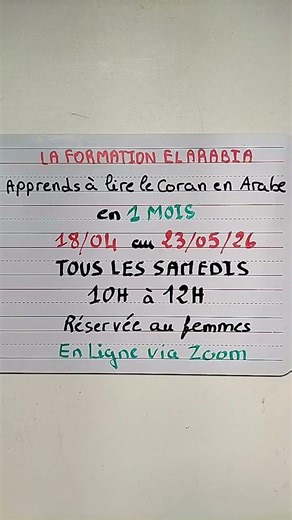 LA FORMATION EL ARABIA
Apprends à lire le Coran en Arabe
en 1 MOIS
18/04 au 23/05/26
TOUS LES SAMEDIS
10H à 12H
Réservée au femmes
En Ligne via Zoom